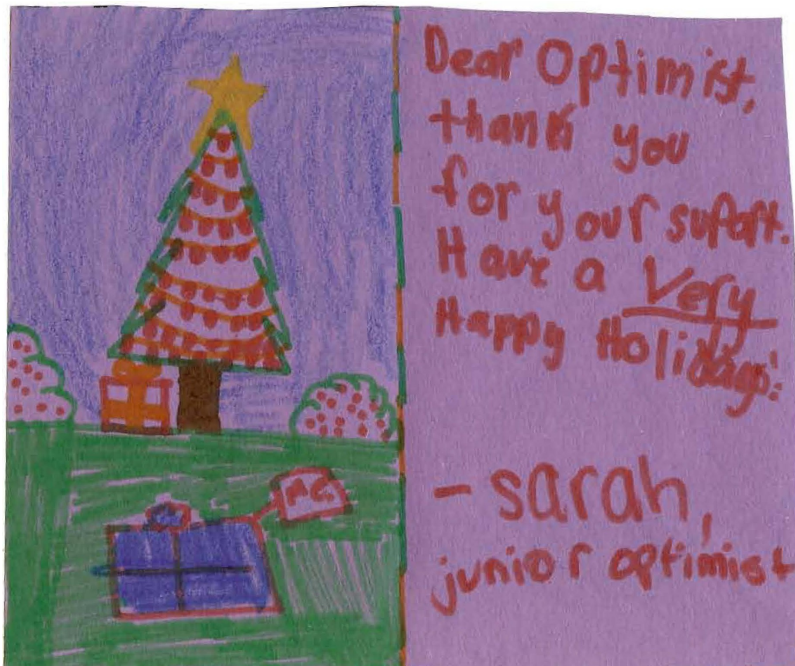 Dear Optimist,
thank you
for your suport.
Have a Very
Happy Holidays!
- sarah,
junior optimist